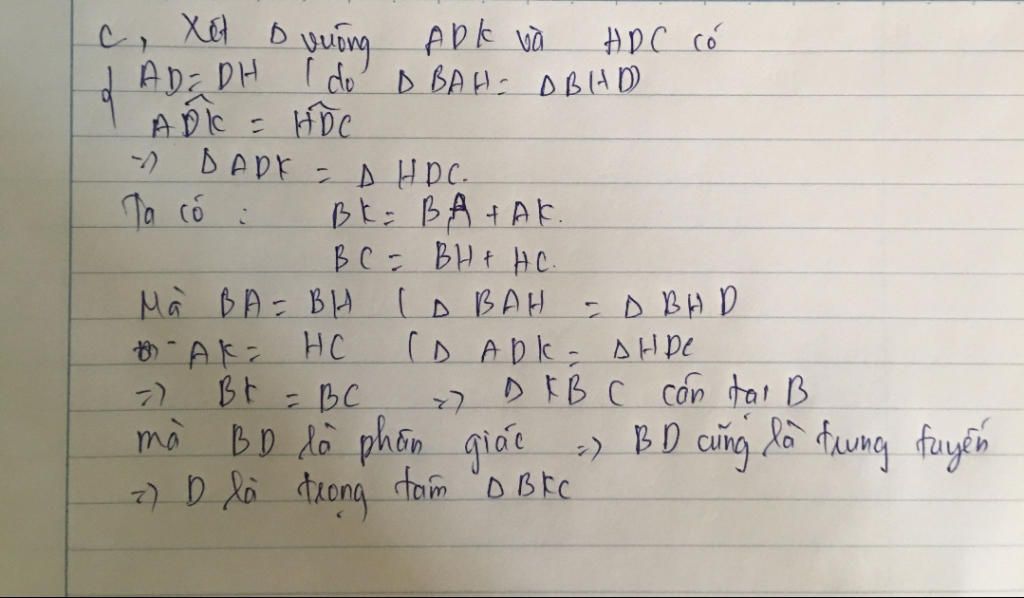 c, Xét Δ vuông ADK và HDC có
{ AD = DH ( do Δ BAH = Δ BHD)
ADK̂ = HDĈ
=> Δ ADK = Δ HDC.
Ta có : BK = BA + AK.
BC = BH + HC.
Mà BA = BH ( Δ BAH = Δ BHD
- AK = HC ( Δ ADK = Δ HDC
=> BK = BC => Δ KBC cân tại B
mà BD là phân giác => BD cũng là trung tuyến
=> D là trọng tâm Δ BKC